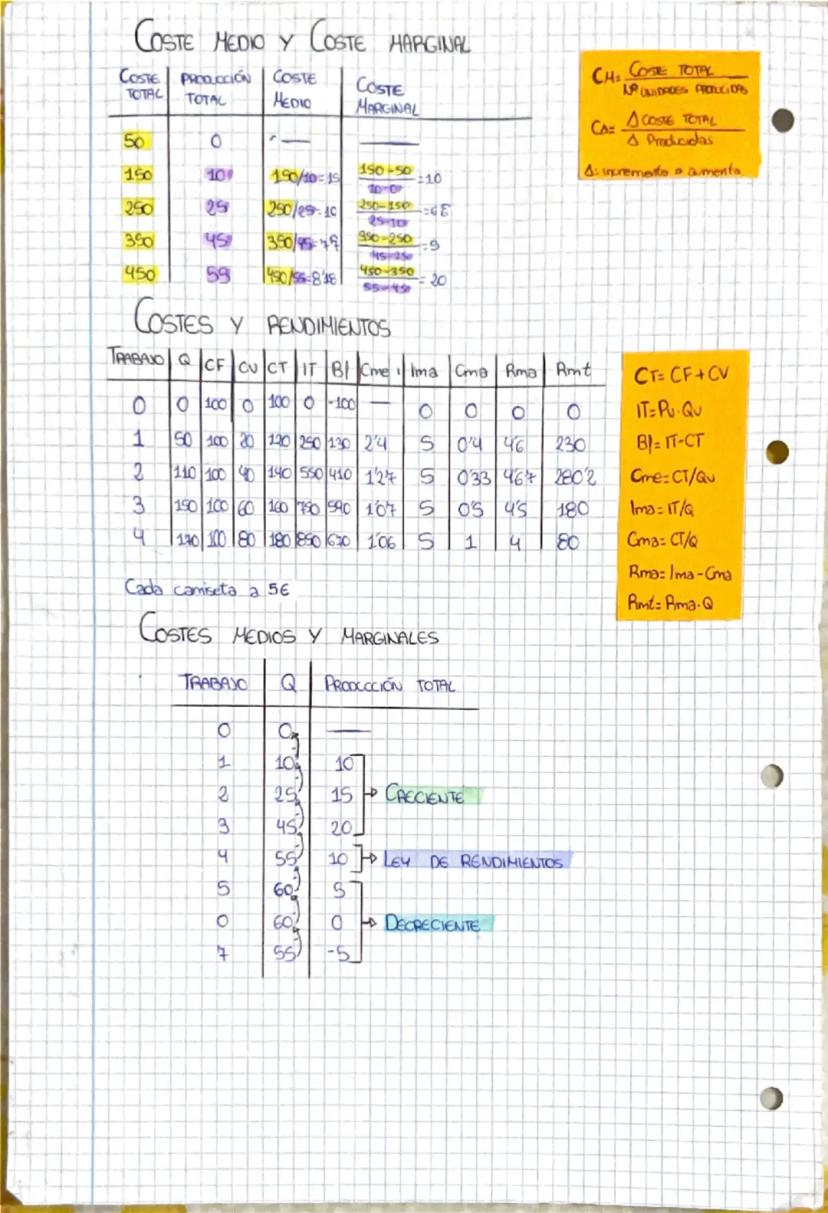 COSTE MEDIO Y COSTE MARGINAL
COSTE TOTAL | PRODUCCIÓN TOTAL | COSTE MEDIO | COSTE MARGINAL
50 | 0 | — | —
150 | 10 | 150/10=15 | 150-50 / 10-0 =10
250 | 25 | 250/25=10 | 250-150 / 25-10
350 | 45 | 350/45= | 350-250 / 45-25 =5
450 | 55 | 450/55=8'18 | 450-350 / 55-45 =20
CM= COSTE TOTAL / Nº UNIDADES PRODUCIDAS
Δ COSTE TOTAL / Δ Producidas
Δ: incremento o aumento
COSTES Y RENDIMIENTOS
TRABAJO | Q | CF | CV | CT | IT | B/ | Cme | Ima | Cma | Rma | Rmt
0 | 0 | 100 | 0 | 100 | 0 | -100 | — | 0 | 0 | 0 | 0
1 | 50 | 100 | 20 | 120 | 250 | 130 | 2'4 | 5 | 0'4 | 4'6 | 230
2 | 110 | 100 | 40 | 140 | 550 | 410 | 1'27 | 5 | 0'33 | 4'67 | 280'2
3 | 150 | 100 | 60 | 160 | 750 | 590 | 1'07 | 5 | 0'5 | 4'5 | 180
4 | 170 | 100 | 80 | 180 | 850 | 670 | 1'06 | 5 | 1 | 4 | 80
CT= CF+CV
IT=Pu·Qu
B/=IT-CT
Cme=CT/Qu
Ima=IT/Q
Cma=CT/Q
Rma=Ima-Cma
Rmt=Rma·Q
Cada camiseta a 5€
COSTES MEDIOS Y MARGINALES
TRABAJO | Q | PRODUCCIÓN TOTAL
0 | 0 | —
1 | 10 | 10
2 | 25 | 15 → CRECIENTE
3 | 45 | 20
4 | 55 | 10 → LEY DE RENDIMIENTOS
5 | 60 | 5
0 | 60 | 0 → DECRECIENTE
7 | 55 | -5